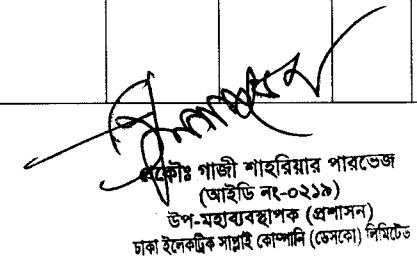 প্রকৌঃ গাজী শাহরিয়ার পারভেজ
(আইডি নং-০২১৯)
উপ-মহাব্যবস্থাপক (প্রশাসন)
ঢাকা ইলেকট্রিক সাপ্লাই কোম্পানি (ডেসকো) লিমিটেড